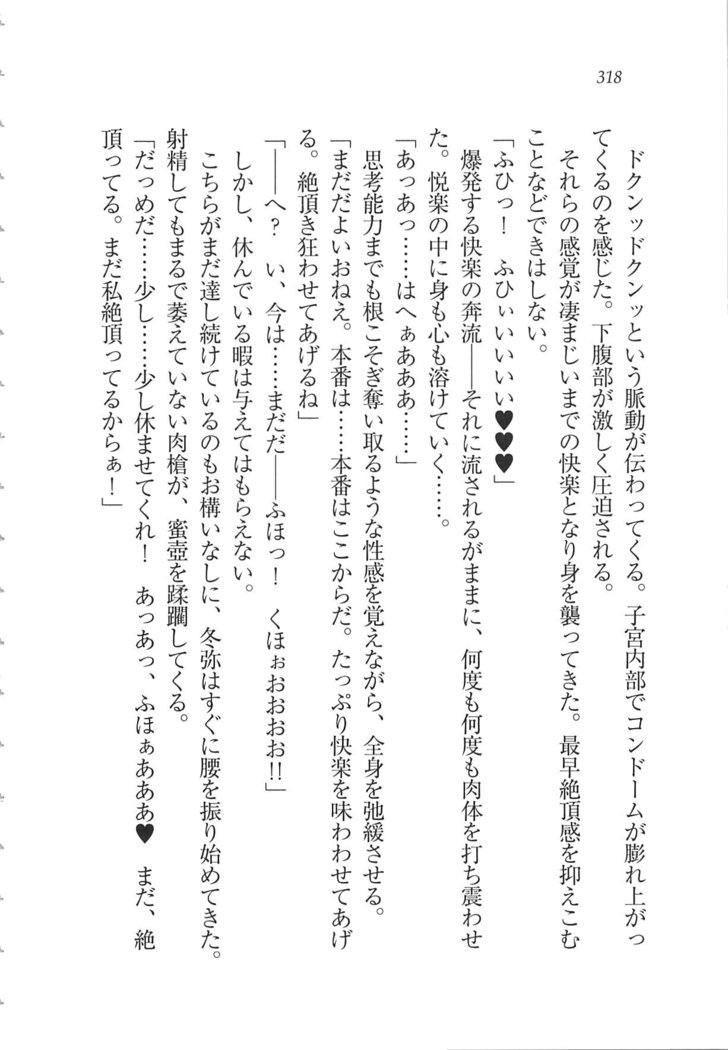 318
ドクンッドクンッという脈動が伝わってくる。子宮内部でコンドームが膨れ上がっ
てくるのを感じた。下腹部が激しく圧迫される。
それらの感覚が凄まじいまでの快楽となり身を襲ってきた。最早絶頂感を抑えこむ
ことなどできはしない。
「ふひっ！　ふひぃいいいい♥♥♥」
爆発する快楽の奔流――それに流されるがままに、何度も何度も肉体を打ち震わせ
た。悦楽の中に身も心も溶けていく……。
「あっあっ……はへぁあああ……」
思考能力までも根こそぎ奪い取るような性感を覚えながら、全身を弛緩させる。
「まだだよいおねえ。本番は……本番はここからだ。たっぷり快楽を味わわせてあげ
る。絶頂き狂わせてあげるね」
「――へ？　い、今は……まだだ――ふほっ！　くほぉおおおお!!」
しかし、休んでいる暇は与えてはもらえない。
こちらがまだ達し続けているのもお構いなしに、冬弥はすぐに腰を振り始めてきた。
射精してもまるで萎えていない肉槍が、蜜壺を蹂躙してくる。
「だっめだ……少し……少し休ませてくれ！　あっあっ、ふほぁあああ♥　まだ、絶
頂ってる。まだ私絶頂ってるからぁ！」